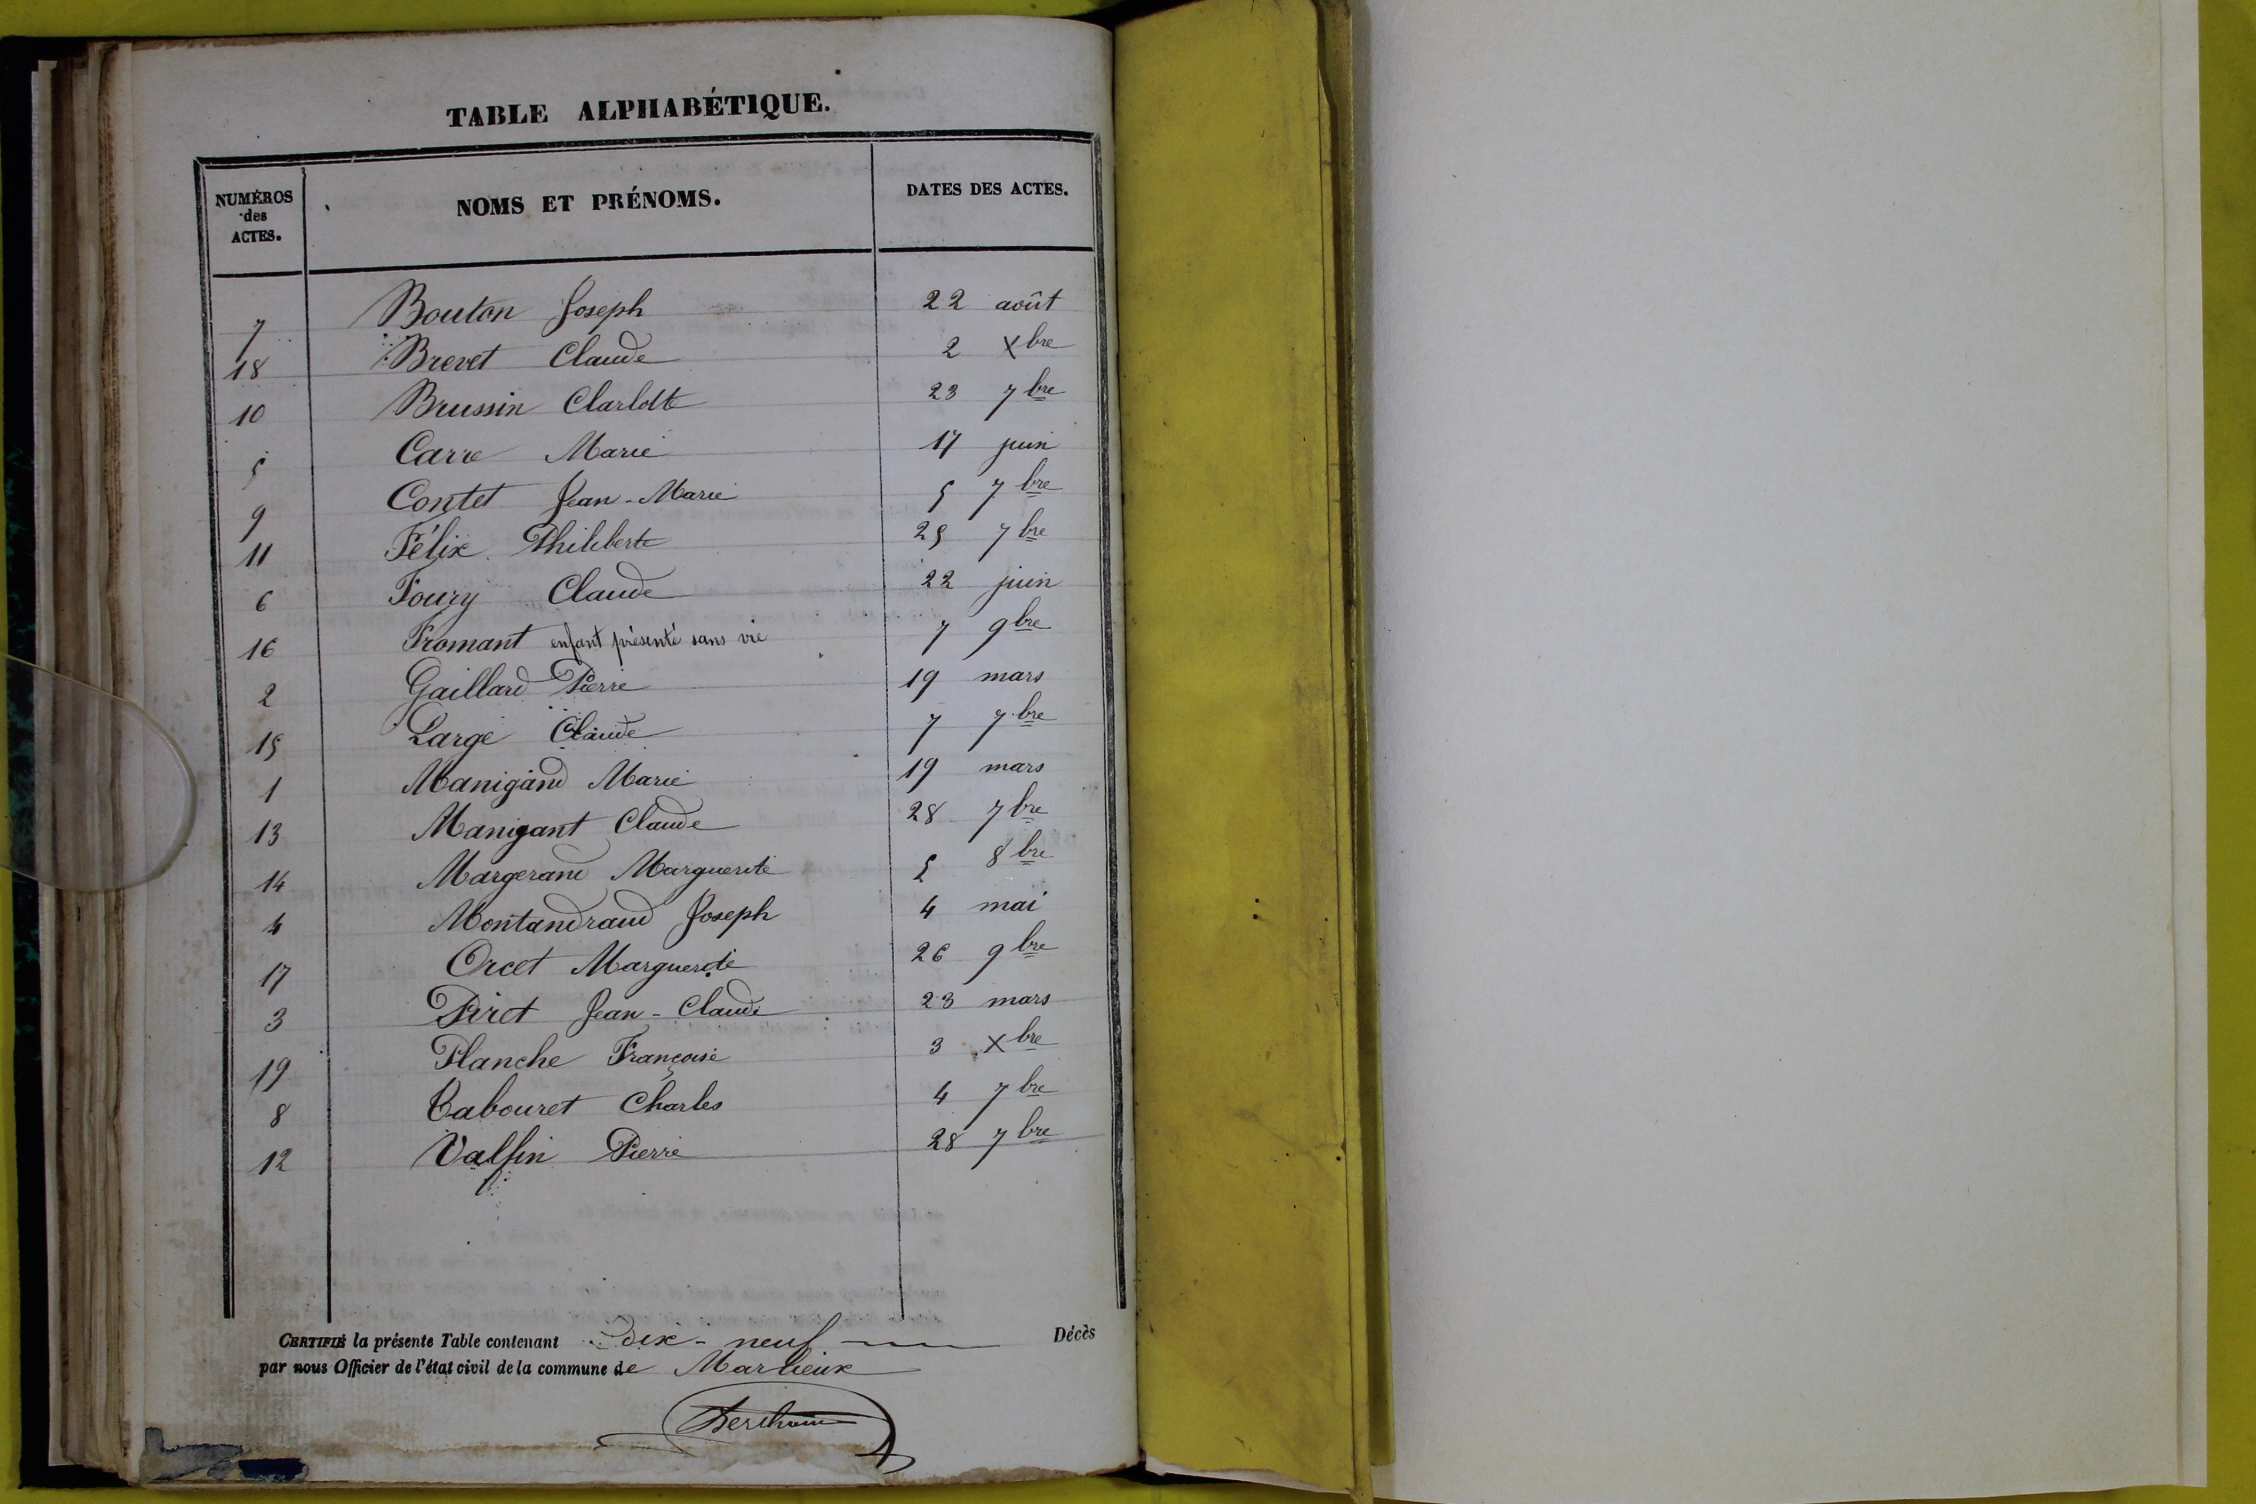 TABLE ALPHABÉTIQUE.
NUMÉROS des ACTES. NOMS ET PRÉNOMS. DATES DES ACTES.
7 Bouton Joseph 22 août
18 Brevet Claude 2 Xbre
10 Brussin Clarlotte 23 7bre
5 Carre Marie 17 juin
9 Contet Jean-Marie 5 7bre
11 Félix Philiberte 25 7bre
6 Foury Claude 22 juin
16 Fromant enfant présenté sans vie 7 9bre
2 Gaillard Pierre 19 mars
15 Large Claude 7 7bre
1 Manigand Marie 19 mars
13 Manigant Claude 28 7bre
14 Margerand Marguerite 5 8bre
4 Montandraud Joseph 4 mai
17 Orcet Marguerite 26 9bre
3 Piret Jean-Claude 23 mars
19 Planche Françoise 3 Xbre
8 Tabouret Charles 4 7bre
12 Valfin Pierre 28 7bre
CERTIFIÉ la présente Table contenant dix-neuf Décès
par nous Officier de l'état civil de la commune de Marlieux